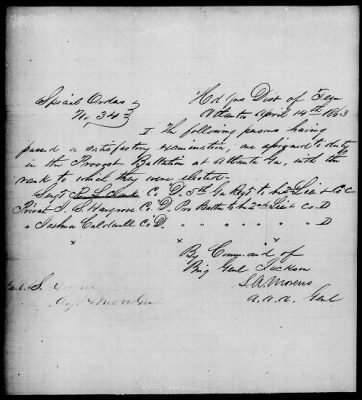 Hd Qrs Dist of Tenn
Special Orders
Atlanta April 14th 1863
No 34
I The following persons having
passed a satisfactory examination, are assigned to duty
in the Provost Battalion at Atlanta Ga, with the
rank to which they were elected
Sergt Co D 5th Ga Regt to be Lieut Co C
Privat J. S. Hargrove Co D. Pro Battn to be 2nd Lieut Co D
" Joshua Caldwell Co D. " " " " D
By Command of
Brig Genl Jackson
S. A. Moreno
A. A. A. Genl